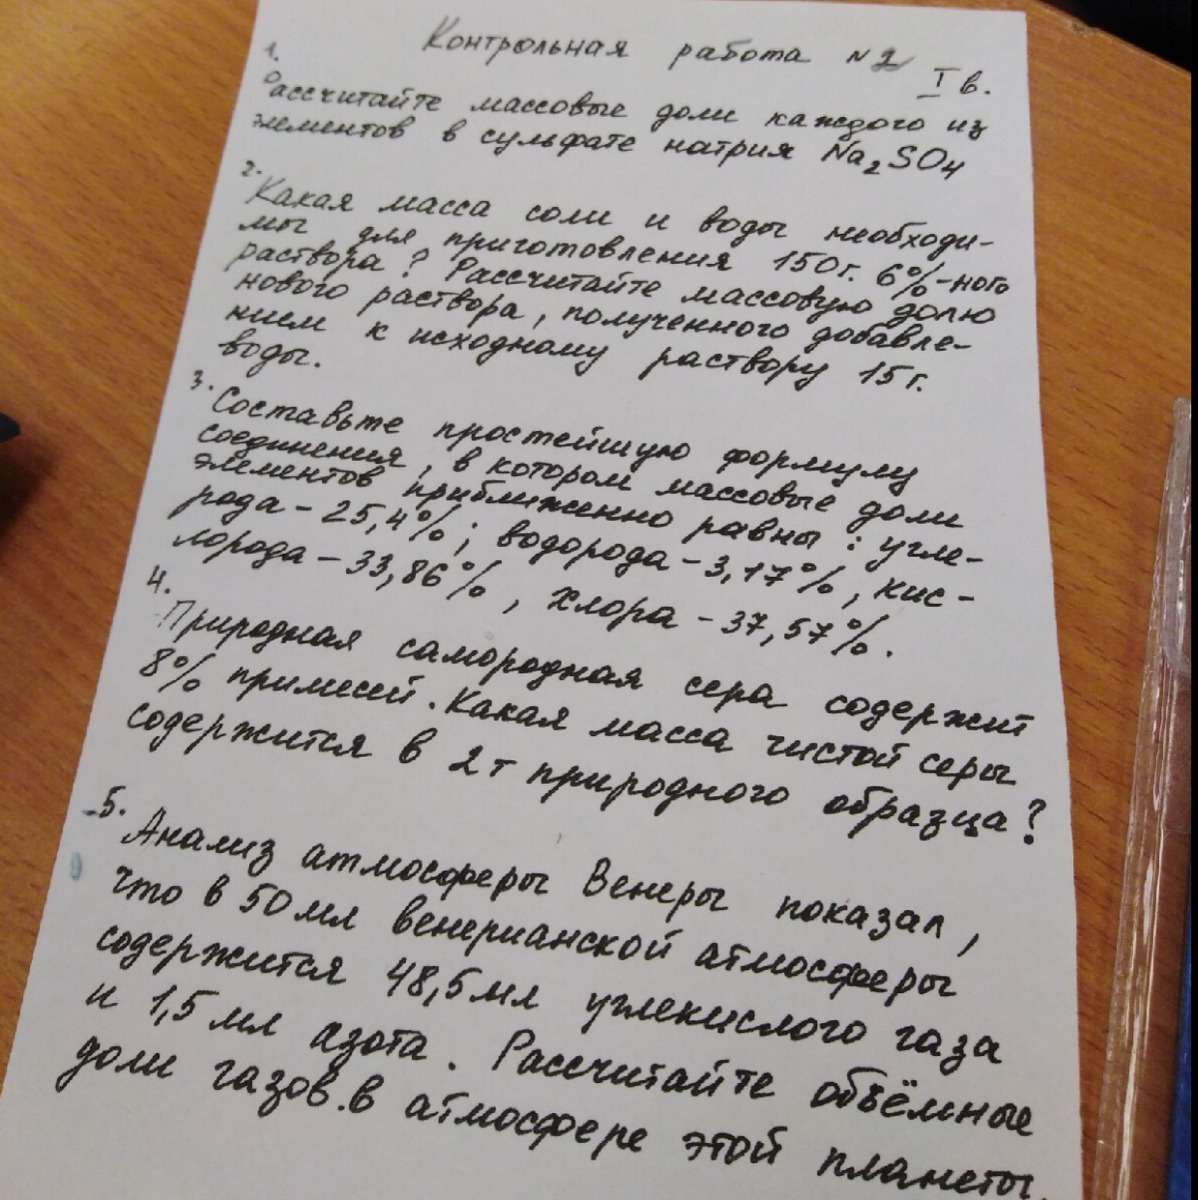 Контрольная работа №2
I в.
1.
Рассчитайте массовые доли каждого из
элементов в сульфате натрия Na₂SO₄
2.
Какая масса соли и воды необходи-
мы для приготовления 150г. 6%-ного
раствора? Рассчитайте массовую долю
нового раствора, полученного добавле-
нием к исходному раствору 15г.
воды.
3.
Составьте простейшую формулу
соединения, в котором массовые доли
элементов приближенно равны: угле-
рода - 25,4%; водорода - 3,17%, кис-
лорода - 33,86%, хлора - 37,57%.
4.
Природная самородная сера содержит
8% примесей. Какая масса чистой серы
содержится в 2т природного образца?
5.
Анализ атмосферы Венеры показал,
что в 50 мл венерианской атмосферы
содержится 48,5 мл углекислого газа
и 1,5 мл азота. Рассчитайте объёмные
доли газов.в атмосфере этой планеты.